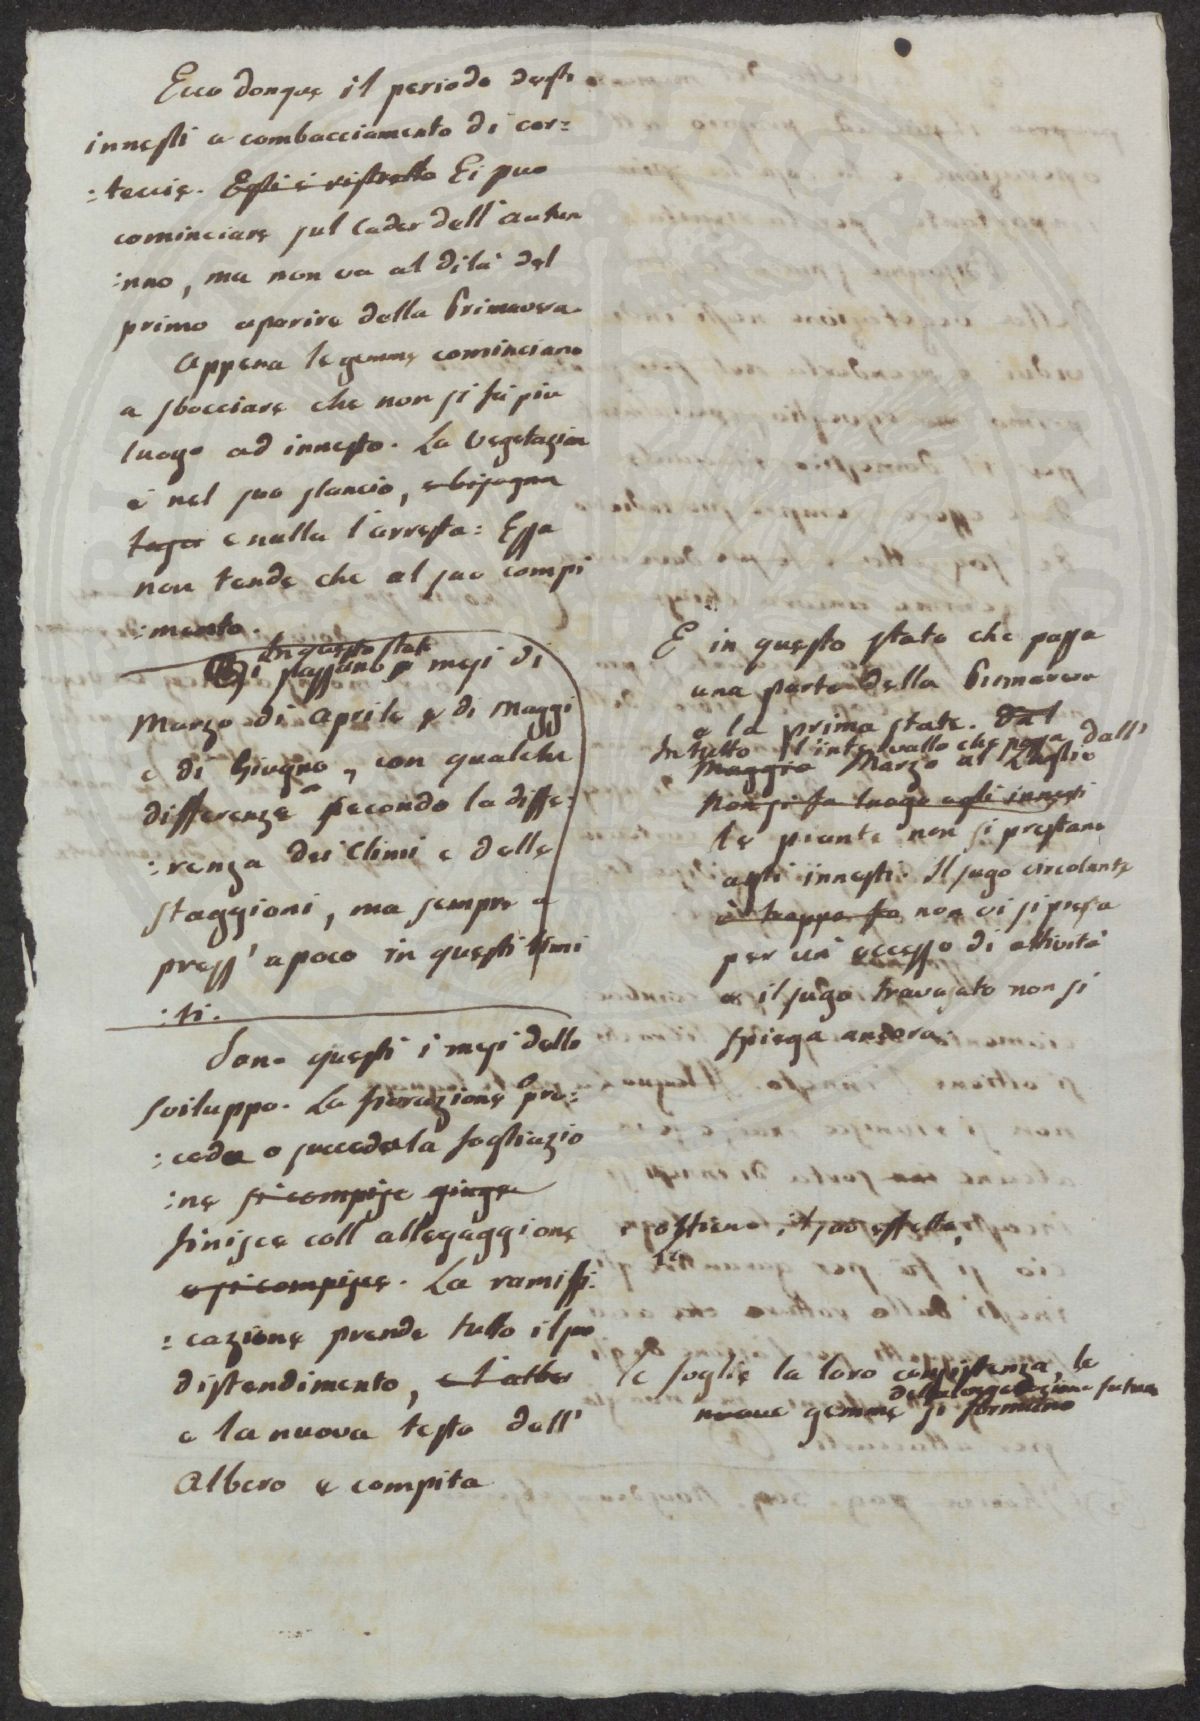 Ecco donque il periodo degli
innesti a combacciamento di cor=
:teccie. Egli è ristretto Ei puo
cominciare sul Cader dell'autun
:nno, ma non va al di là del
primo aparire della Primavera.
Appena le gemme cominciano
a sbocciare che non si fà piu
luogo ad innesto. La Vegetazion
è nel suo slancio, e bisogna
e nulla l'arresta: Essa
non tende che al suo compi
:mento.
In questo stato
si passano mesi di
Marzo di Aprile e di Maggi
e di Giugno, con qualche
differenza secondo la diffe:
:renza dei Climi e delle
staggioni, ma sempre a
press'a poco in questi limi
:ti.
Sono questi i mesi dello
sviluppo. La fiorazione pre:
:cede o succede la fogliazio
:ne si compisce
finisce coll'allegaggione
e si compisce. La ramifi:
:cazione prende tutto il suo
distendimento, e l'alber
e la nuova testa dell'
Albero è compita
E in questo stato che passa
una parte della Primavera
e la prima state. Dal
In tutto l'intervallo che passa dall'
Maggio Marzo al Luglio
Non si fa luogo agli innesti
le piante non si prestano
agli innesti. Il sugo circolante
è troppo non vi si presta
per un eccesso di attività
e il sugo travasato non si
spiega ancora
ottiene il suo effetto,
le foglie la loro consistenza, le
della vegetazione futura
nuove gemme si formano